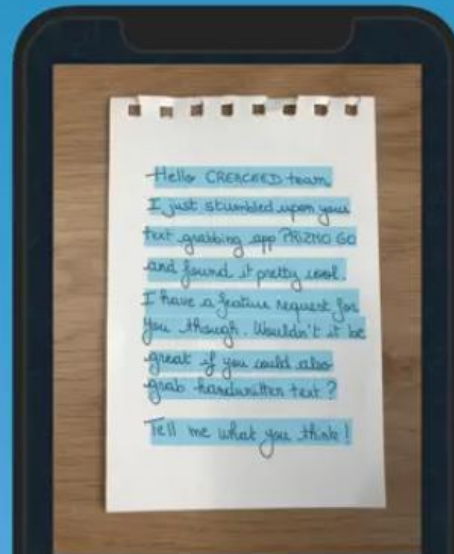 Hello CREACEED team,
I just stumbled upon your
text grabbing app PRIZMO GO
and found it pretty cool.
I have a feature request for
you though. Wouldn't it be
great if you could also
grab handwritten text?
Tell me what you think!